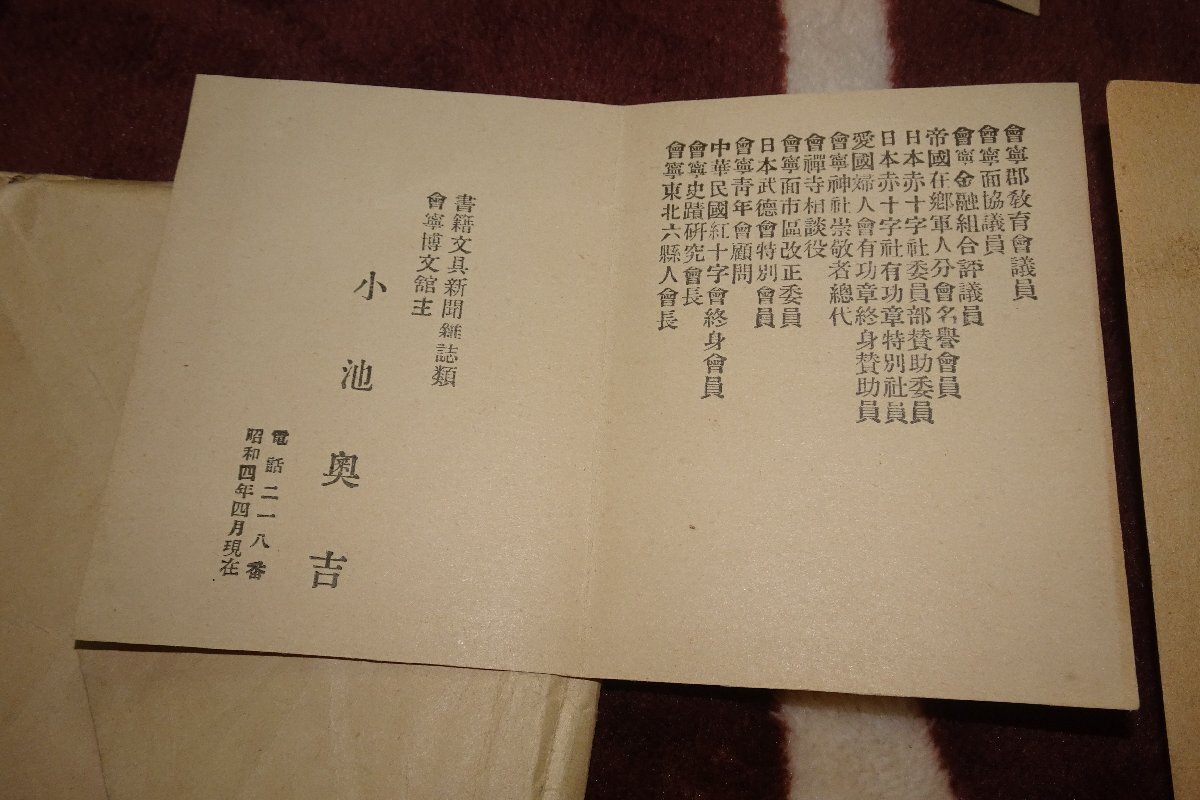 會寧郡敎育會議員
會寧面協議員
會寧金融組合評議員
帝國在鄕軍人分會名譽會員
日本赤十字社委員部賛助委員
日本赤十字社有功章特別社員
愛國婦人會有功章終身賛助員
會寧神社崇敬者總代
會禪寺相談役
會寧面市區改正委員
日本武德會特別會員
會寧靑年會顧問
中華民國紅十字會終身會員
會寧史蹟硏究會長
會寧東北六縣人會長
書籍文具新聞雜誌類
會寧博文舘主
小池奧吉
電話二一八番
昭和四年四月現在